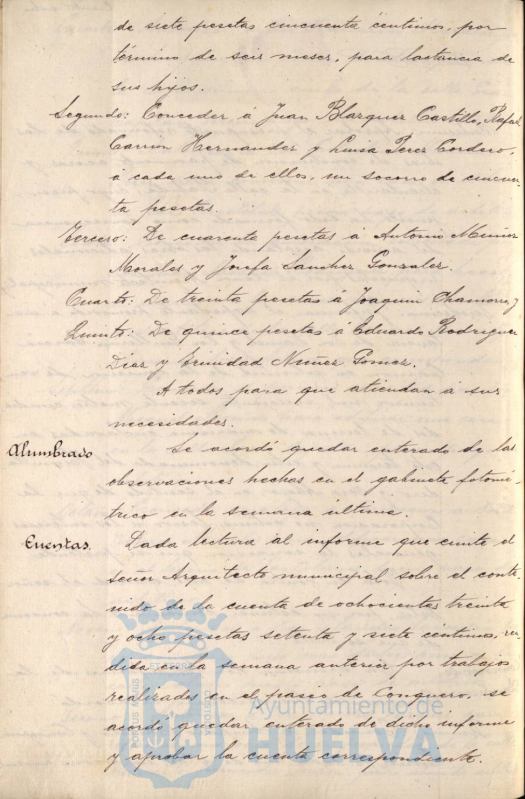 de siete pesetas cincuenta centimos, por
término de seis meses, para lactancia de
sus hijos.
Segundo: Conceder á Juan Blazquez Castillo, Rafael
Carrion Hernandez y Luisa Perez Cordero,
á cada uno de ellos, un socorro de cincuen-
ta pesetas.
Tercero: De cuarenta pesetas á Antonio Muñoz
Morales y Josefa Sanchez Gonzalez.
Cuarto: De treinta pesetas á Joaquin Chamorro, y
Quinto: De quince pesetas á Eduardo Rodriguez
Diaz y Trinidad Nuñez Gomez.
A todos para que atiendan á sus
necesidades.
Alumbrado
Se acordó quedar enterado de las
observaciones hechas en el gabinete fotomé-
trico en la semana última.
Cuentas.
Dada lectura al informe que emite el
Señor Arquitecto municipal, sobre el conte-
nido de la cuenta de ochocientas treinta
y ocho pesetas setenta y siete céntimos, ren-
dida en la semana anterior por trabajos
realizados en el paseo de Conquero, se
acordó quedar enterado de dicho informe
y aprobar la cuenta correspondiente.
Ayuntamiento de
HUELVA